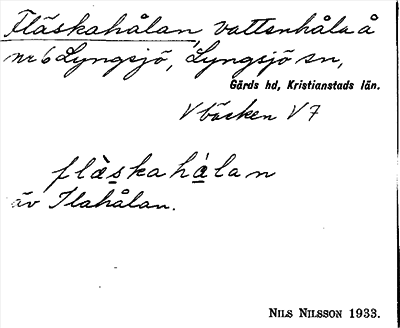 Fläskahålan, vattenhåla å
nr 6 Lyngsjö, Lyngsjö sn,
Gärds hd, Kristianstads län.
V bäcken V 7
flä̀skahá̀lan
äv Ilahålan.
NILS NILSSON 1933.